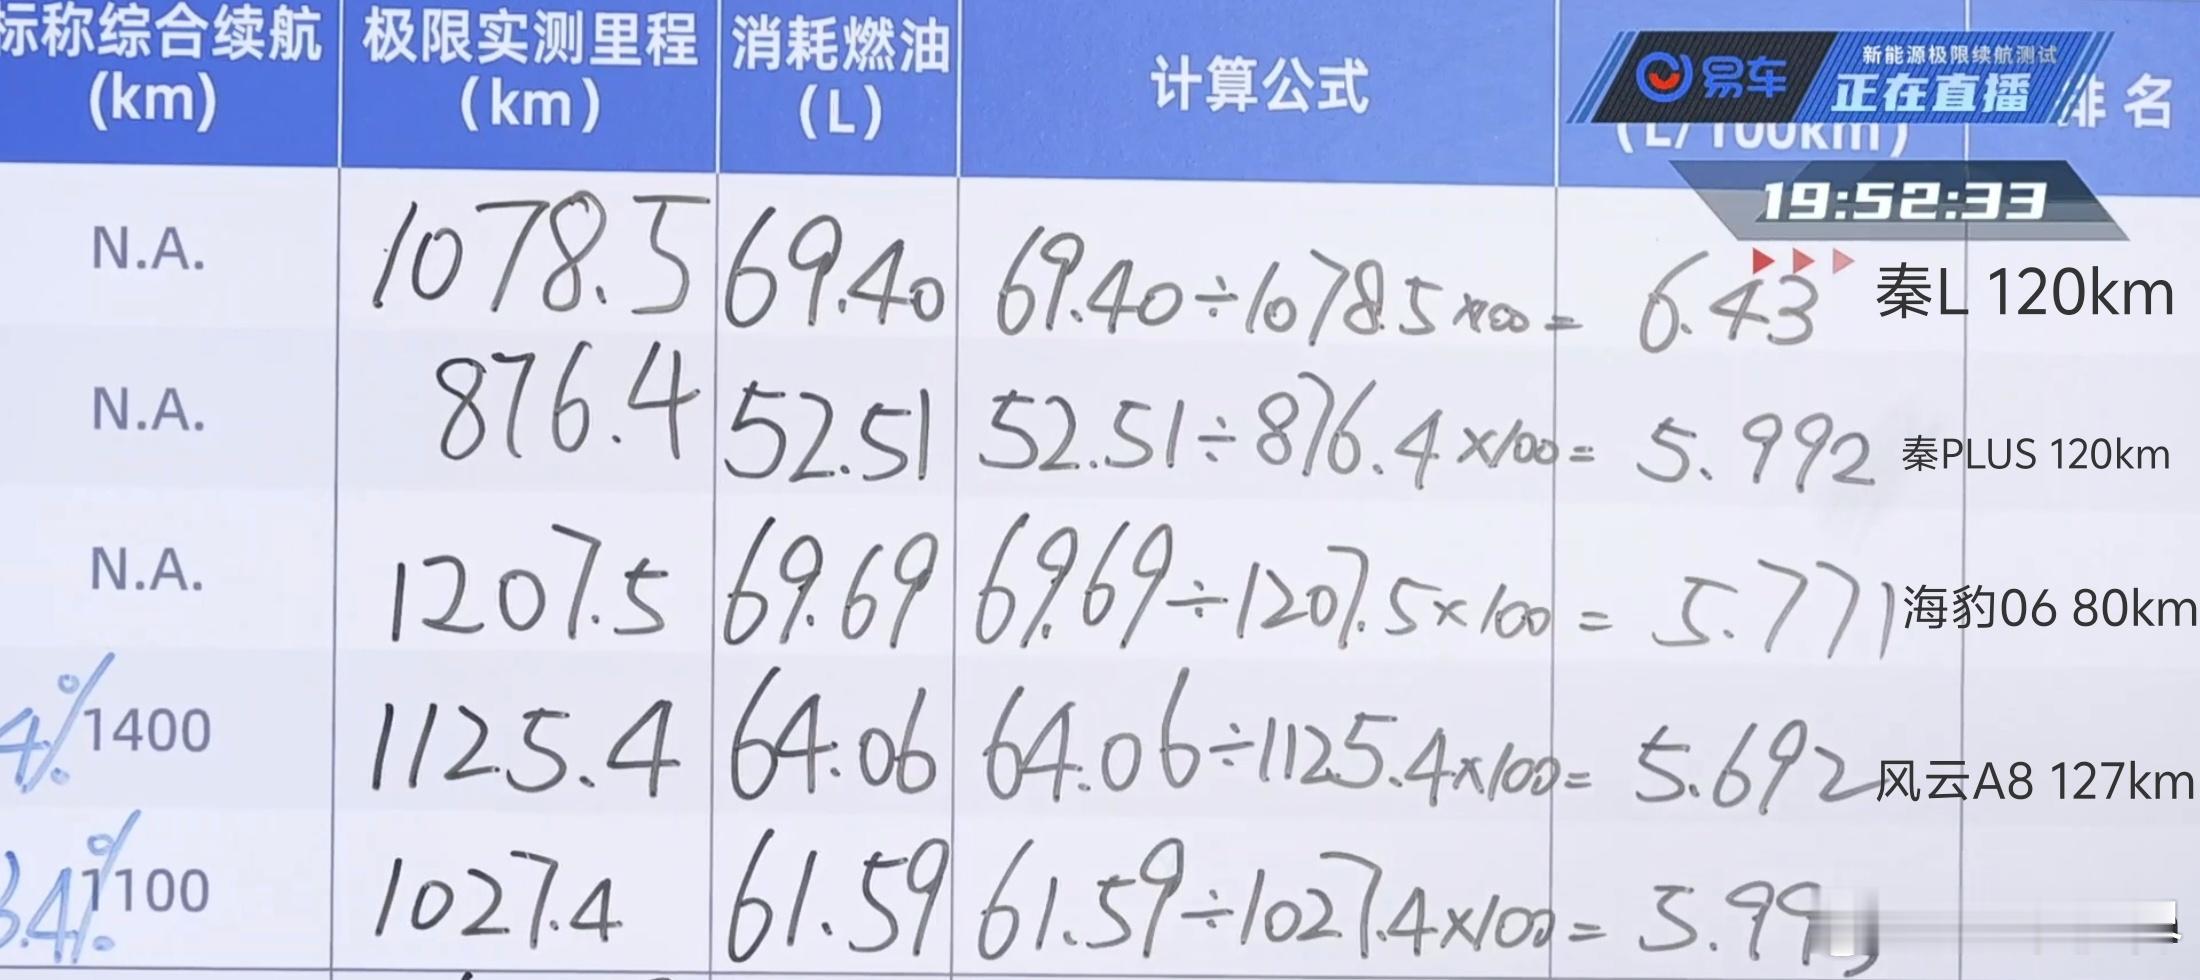 标称综合续航 极限实测里程 消耗燃油 计算公式 易车 新能源极限续航测试
(km) (km) (L) 正在直播 排名
(L/100km)
19:52:33
N.A. 1078.5 69.40 69.40÷1078.5×100= 6.43 秦L 120km
N.A. 876.4 52.51 52.51÷876.4×100= 5.992 秦PLUS 120km
N.A. 1207.5 69.69 69.69÷1207.5×100= 5.771 海豹06 80km
4% 1400 1125.4 64.06 64.06÷1125.4×100= 5.692 风云A8 127km
3.4% 1100 1027.4 61.59 61.59÷1027.4×100= 5.99